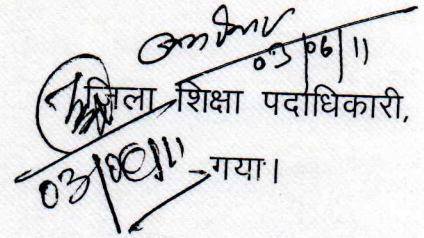 03/06/11
जिला शिक्षा पदाधिकारी,
03/06/11
गया।